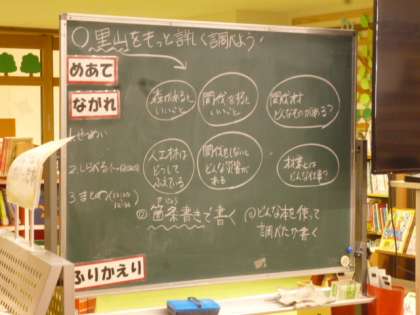 ○黒山をもっと詳しく調べよう
めあて
ながれ
森があると
いいこと
間伐をすると
いいこと
間伐材は
どんなものがある?
1.せつめい
2.しらべる
3.まとめ
人工林は
どうして
ふえている
間伐をしないと
どんな災害が
ある
林業とは
どんな仕事?
◎箇条書きで書く
◎どんな本を使って
調べたか書く
ふりかえり